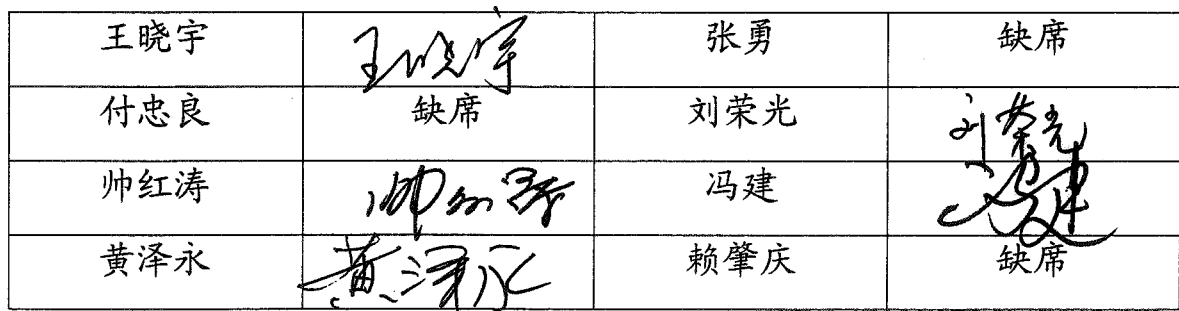 王晓宇 王晓宇 张勇 缺席
付忠良 缺席 刘荣光 刘荣光
帅红涛 帅红涛 冯建 冯建
黄泽永 黄泽永 赖肇庆 缺席